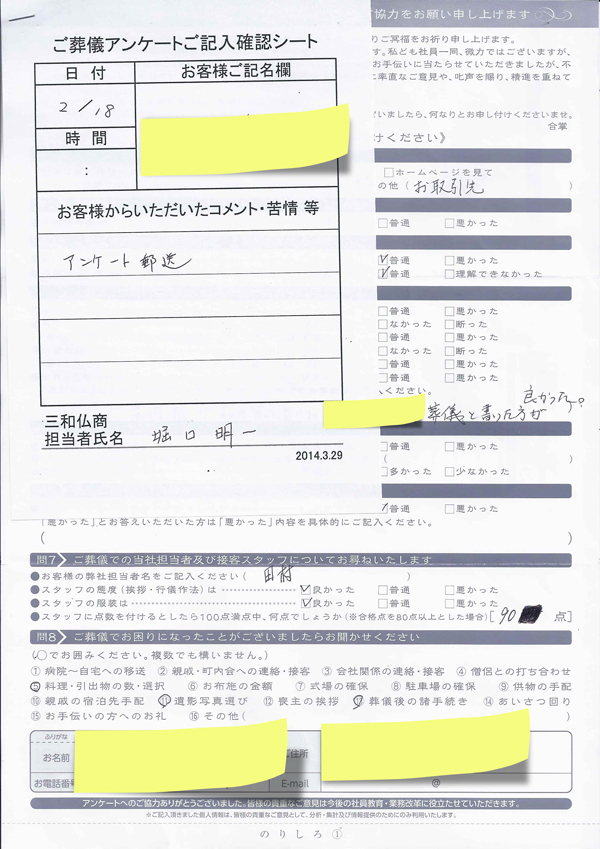 ご協力をお願い申し上げます
ご葬儀アンケートご記入確認シート
日付
お客様ご記名欄
2/18
時間
:
お客様からいただいたコメント・苦情 等
アンケート郵送
三和仏商
担当者氏名 堀口明一
2014.3.29
りご冥福をお祈り申し上げます。
す。私ども社員一同、微力ではございますが、
お手伝いに当たらせていただきましたが、不
に率直なご意見や、叱声を賜り、精進を重ねて
ざいましたら、何なりとお申し付けくださいませ。
合掌
けください》
□ホームページを見て
の他 ( お取引先
□普通 □悪かった
普通 □悪かった
普通 □理解できなかった
普通 □悪かった
なかった □断った
普通 □悪かった
なかった □断った
普通 □悪かった
普通 □悪かった
ください。
葬儀と書いた方が
良かった。
普通 □悪かった
( )
多かった □少なかった
普通 □悪かった
「悪かった」とお答えいただいた方は「悪かった」内容を具体的にご記入ください。
( )
問7 ご葬儀での当社担当者及び接客スタッフについてお尋ねいたします
●お客様の弊社担当者名をご記入ください ( 田村 )
●スタッフの態度(挨拶・行儀作法)は ☑良かった □普通 □悪かった
●スタッフの服装は ☑良かった □普通 □悪かった
●スタッフに点数を付けるとしたら100点満点中、何点でしょうか(※合格点を80点以上とした場合)[ 90 点]
問8 ご葬儀でお困りになったことがございましたらお聞かせください
(○でお囲みください。複数でも構いません。)
①病院〜自宅への移送 ②親戚・町内会への連絡・接客 ③会社関係の連絡・接客 ④僧侶との打ち合わせ
⑤料理・引出物の数・選択 ⑥お布施の金額 ⑦式場の確保 ⑧駐車場の確保 ⑨供物の手配
⑩親戚の宿泊先手配 ⑪遺影写真選び ⑫喪主の挨拶 ⑬葬儀後の諸手続き ⑭あいさつ回り
⑮お手伝いの方へのお礼 ⑯その他( )
ふりがな
お名前
ご住所
お電話番号
E-mail @
アンケートへのご協力ありがとうございました。皆様の貴重なご意見は今後の社員教育・業務改革に役立たせていただきます。
※ご記入頂きました個人情報は、皆様の貴重なご意見として、分析・集計及び情報提供のためにのみ利用いたします。
のりしろ①